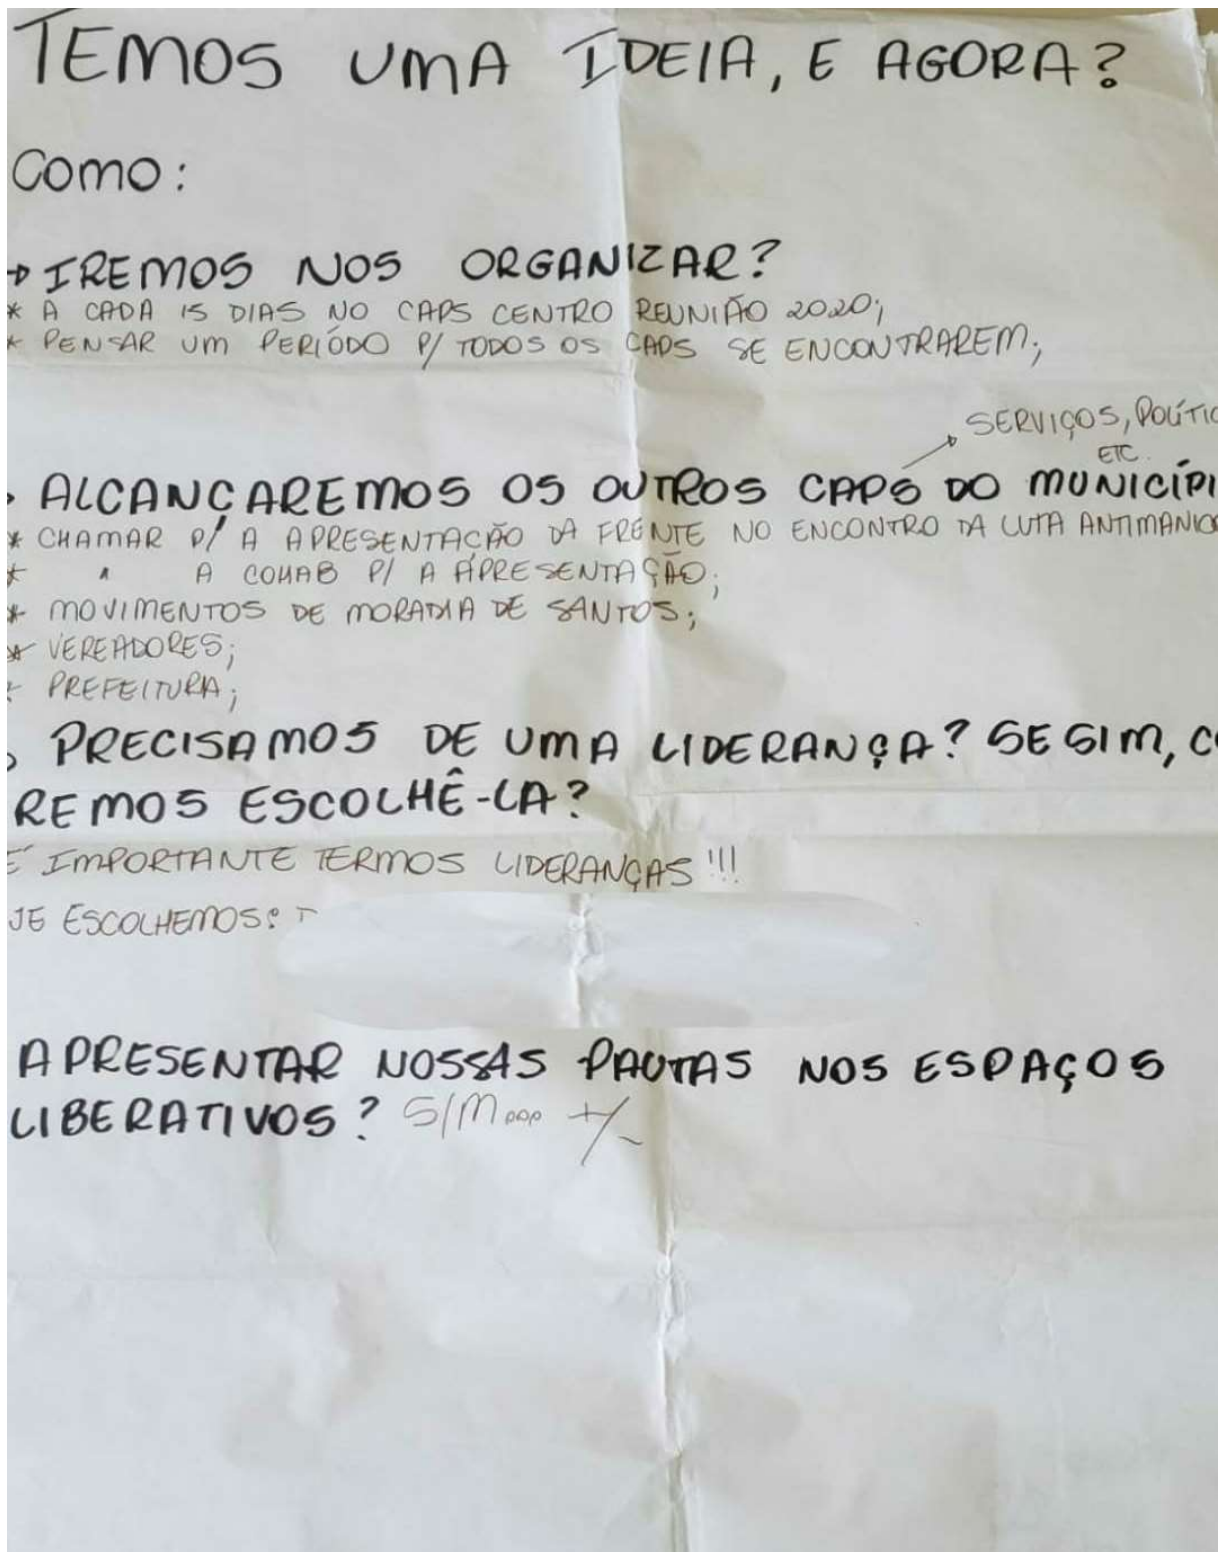 TEMOS UMA IDEIA, E AGORA?
COMO:
→ IREMOS NOS ORGANIZAR?
* A CADA 15 DIAS NO CAPS CENTRO REUNIÃO 2020;
* PENSAR UM PERÍODO P/ TODOS OS CAPS SE ENCONTRAREM;
SERVIÇOS, POLÍTIC
ETC.
ALCANÇAREMOS OS OUTROS CAPS DO MUNICÍPI
* CHAMAR P/ A APRESENTAÇÃO DA FRENTE NO ENCONTRO DA LUTA ANTIMANICO
* " A COHAB P/ A APRESENTAÇÃO;
* MOVIMENTOS DE MORADIA DE SANTOS;
* VEREADORES;
* PREFEITURA;
PRECISAMOS DE UMA LIDERANÇA? SE SIM, CO
REMOS ESCOLHÊ-LA?
É IMPORTANTE TERMOS LIDERANÇAS!!!
JE ESCOLHEMOS:
APRESENTAR NOSSAS PAUTAS NOS ESPAÇOS
LIBERATIVOS? SIM... +/-